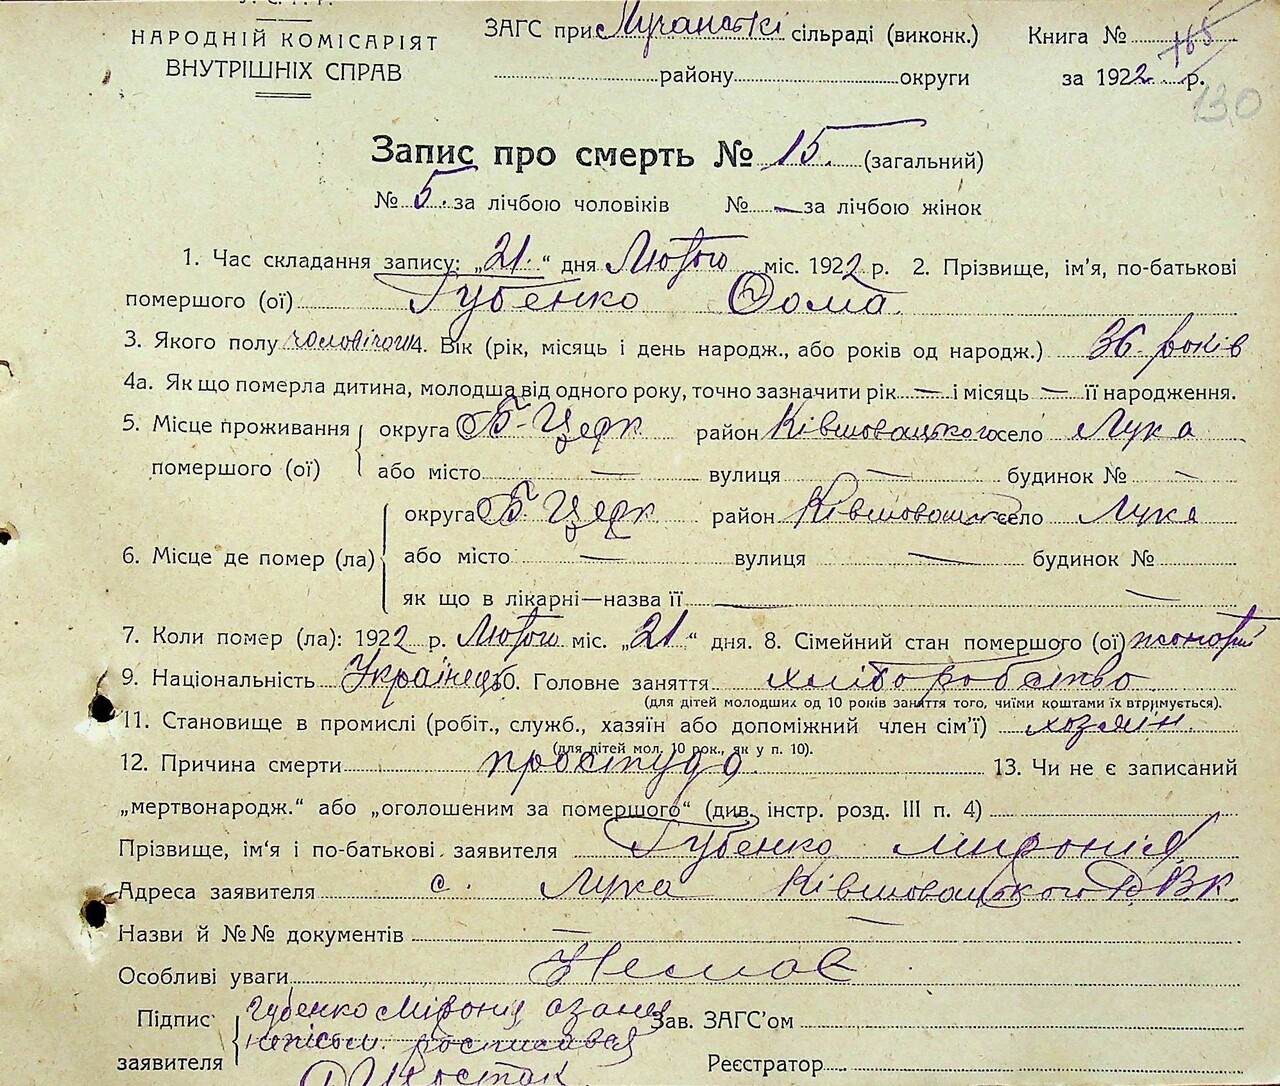 У.С.Р.Р.
НАРОДНІЙ КОМІСАРІЯТ
ВНУТРІШНІХ СПРАВ
ЗАГС при Лучанські сільраді (виконк.) Книга №
165
району округи за 1922 р.
130
Запис про смерть № 15 (загальний)
№ 5. за лічбою чоловіків № — за лічбою жінок
1. Час складання запису: „21“ дня Лютого міс. 1922 р. 2. Прізвище, ім'я, по-батькові
помершого (ої) Губенко Фома.
3. Якого полу чоловічого 4. Вік (рік, місяць і день народж., або років од народж.) 36 років
4а. Як що померла дитина, молодша від одного року, точно зазначити рік — і місяць — її народження.
5. Місце проживання помершого (ої) округа Б-Церк район Ківшовацького село Лука
або місто — вулиця — будинок № —
6. Місце де помер (ла) округа Б Церк район Ківшовацьк село Лука
або місто — вулиця — будинок №
як що в лікарні—назва її — —
7. Коли помер (ла): 1922 р. Лютого міс. „21“ дня. 8. Сімейний стан помершого (ої) жонатий
9. Національність Українець 10. Головне заняття хліборобство
(для дітей молодших од 10 років заняття того, чиїми коштами їх втримується).
11. Становище в промислі (робіт., служб., хазяїн або допоміжний член сім'ї) хозяїн.
(для дітей мол. 10 рок., як у п. 10).
12. Причина смерти простуда 13. Чи не є записаний
„мертвонародж.“ або „оголошеним за помершого“ (див. інстр. розд. III п. 4)
Прізвище, ім'я і по-батькові заявителя Губенко Миронія
Адреса заявителя с. Лука Ківшовацького РВК
Назви й №№ документів —
Особливі уваги Немає
Підпис заявителя Губенко Миронія а за неї
росписався
Шостак
Зав. ЗАГС'ом
Реєстратор